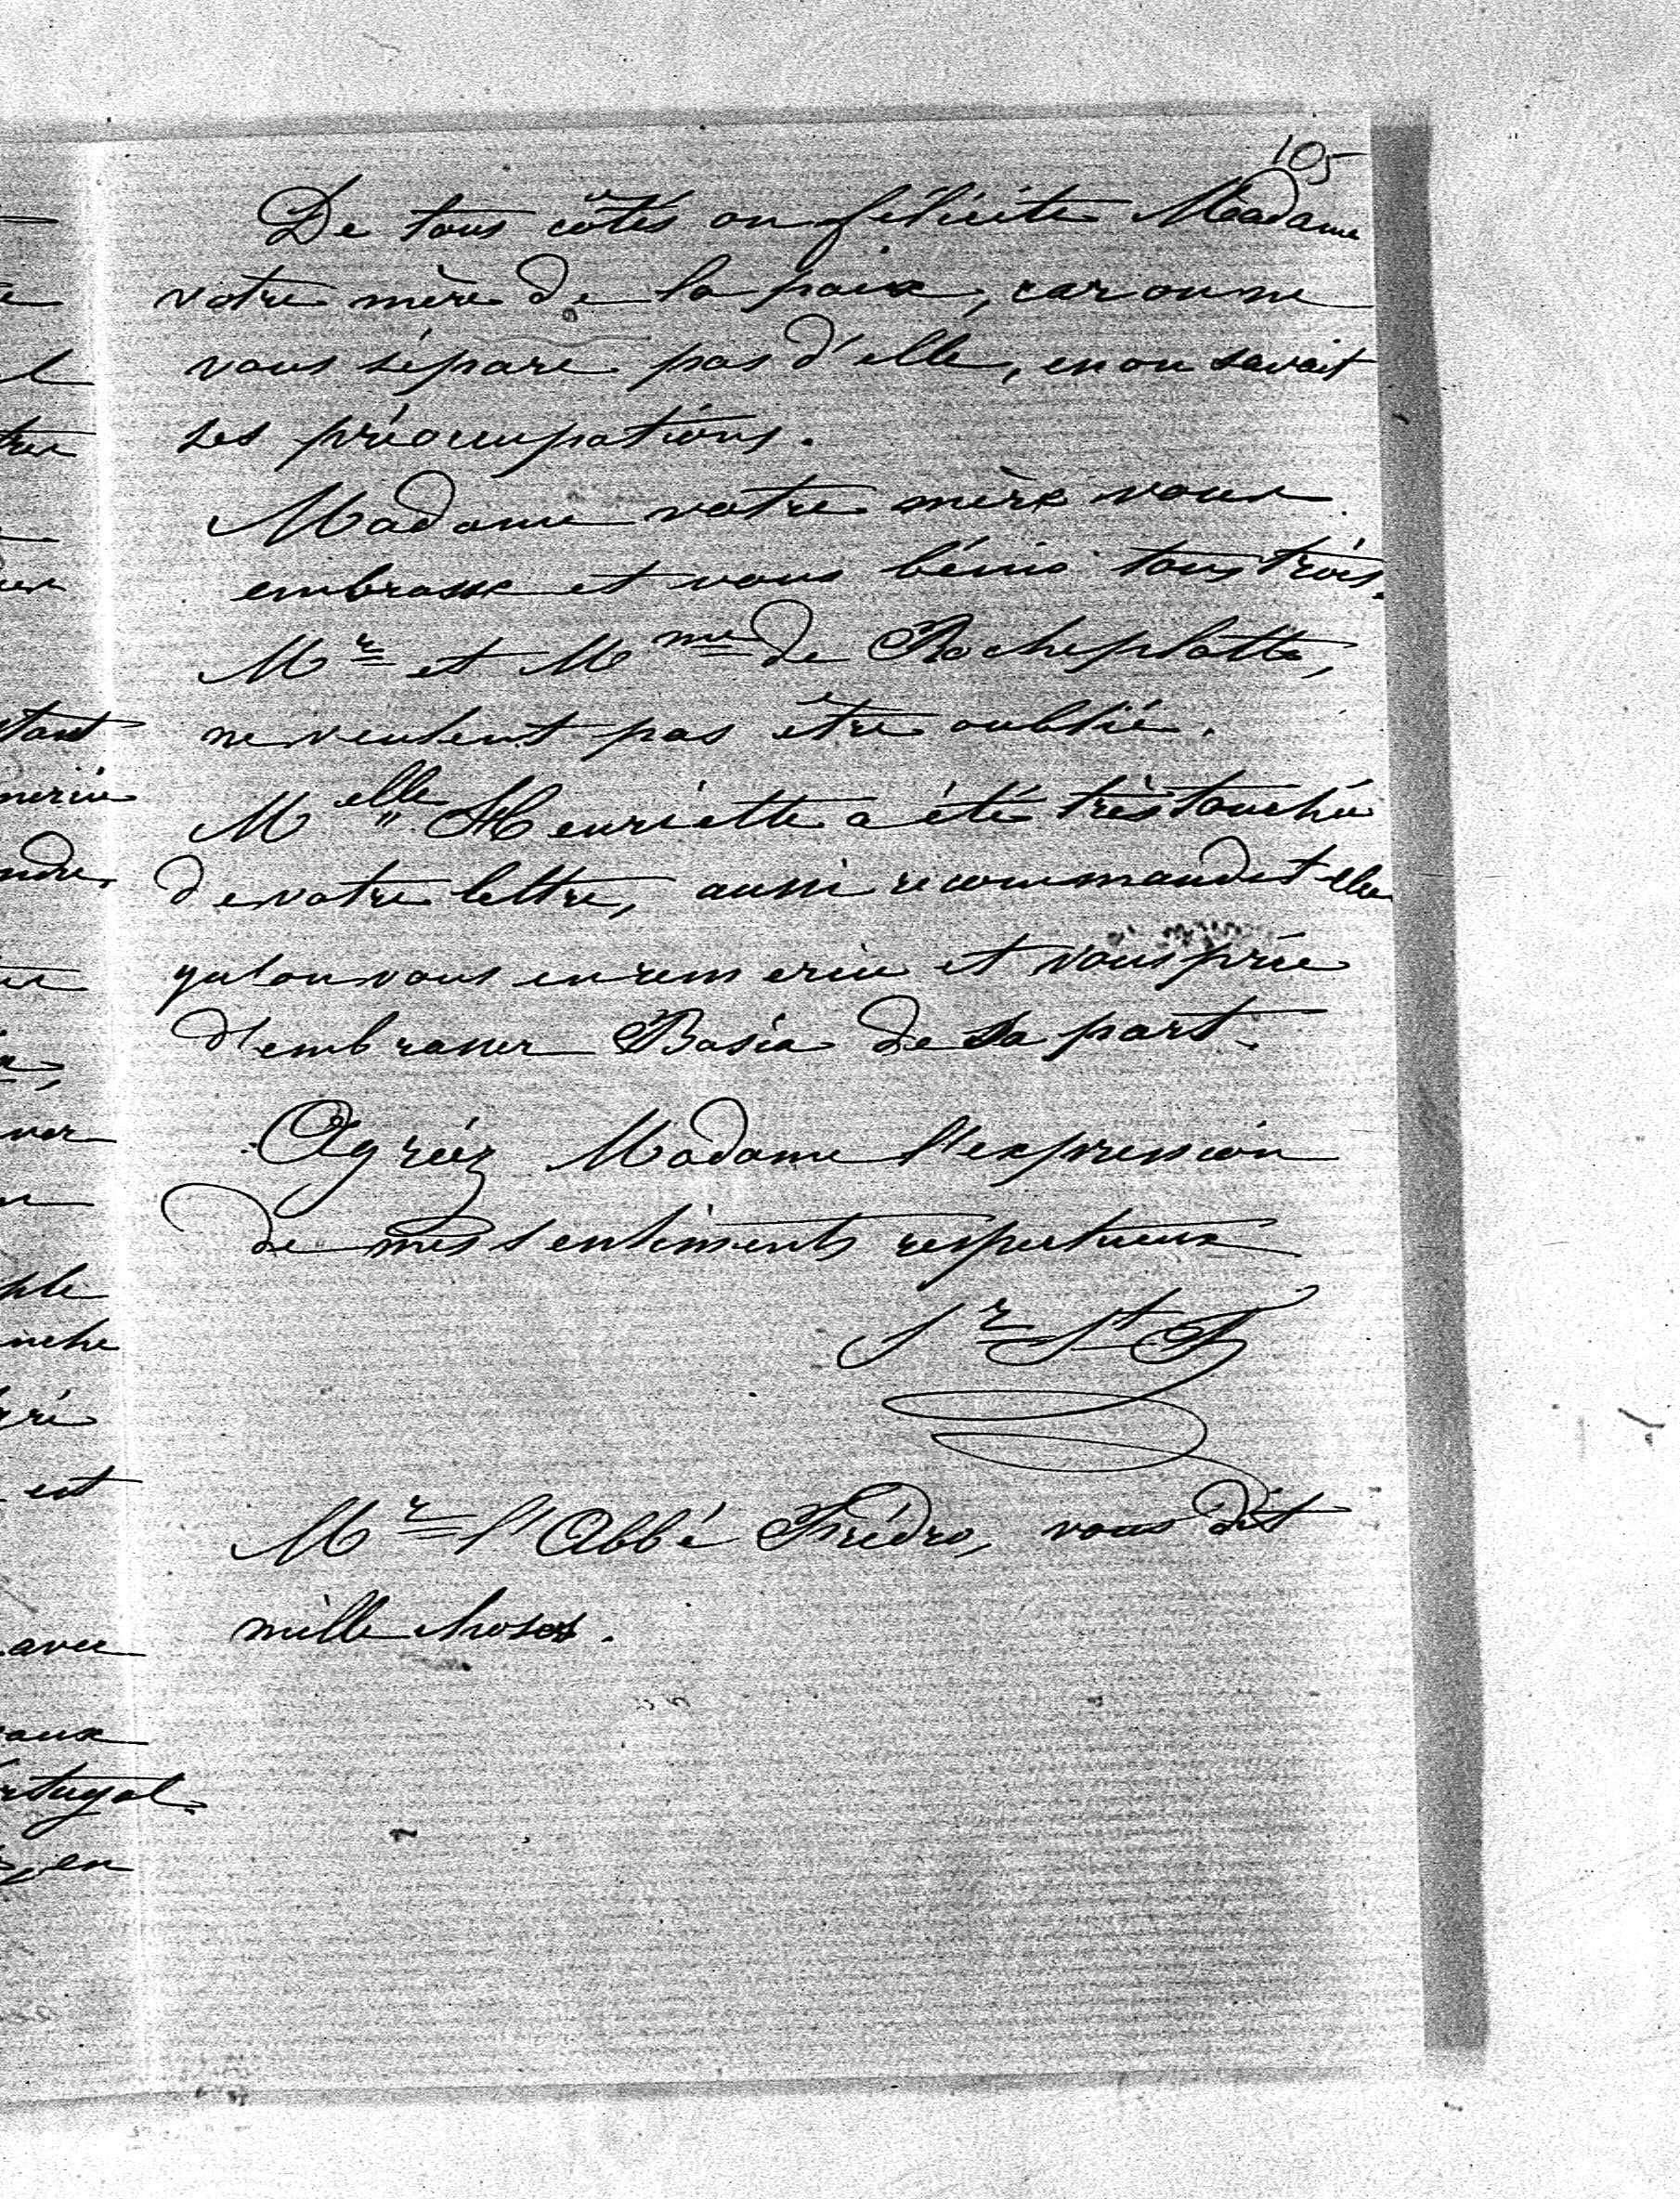 105
De tous côtés on félicite Madame
votre mère de la paix, car on ne
vous sépare pas d'elle, en on savait
ses préoccupations.
Madame votre mère vous
embrasse et vous bénis tous trois.
Mr et Mme de Rocheplatte,
ne veulent pas être oublié.
Melle Henriette a été très touchée
de votre lettre, aussi recommandet elle
qu'on vous en remercie et vous prie
d'embrasser Basia de sa part.
Agréez Madame l'expression
de mes sentiments respectueux
Sr St
Mr l'Abbé Frédro, vous dit
mille choses.
tant
ndre,
ver
ple
est
avec
aux
en